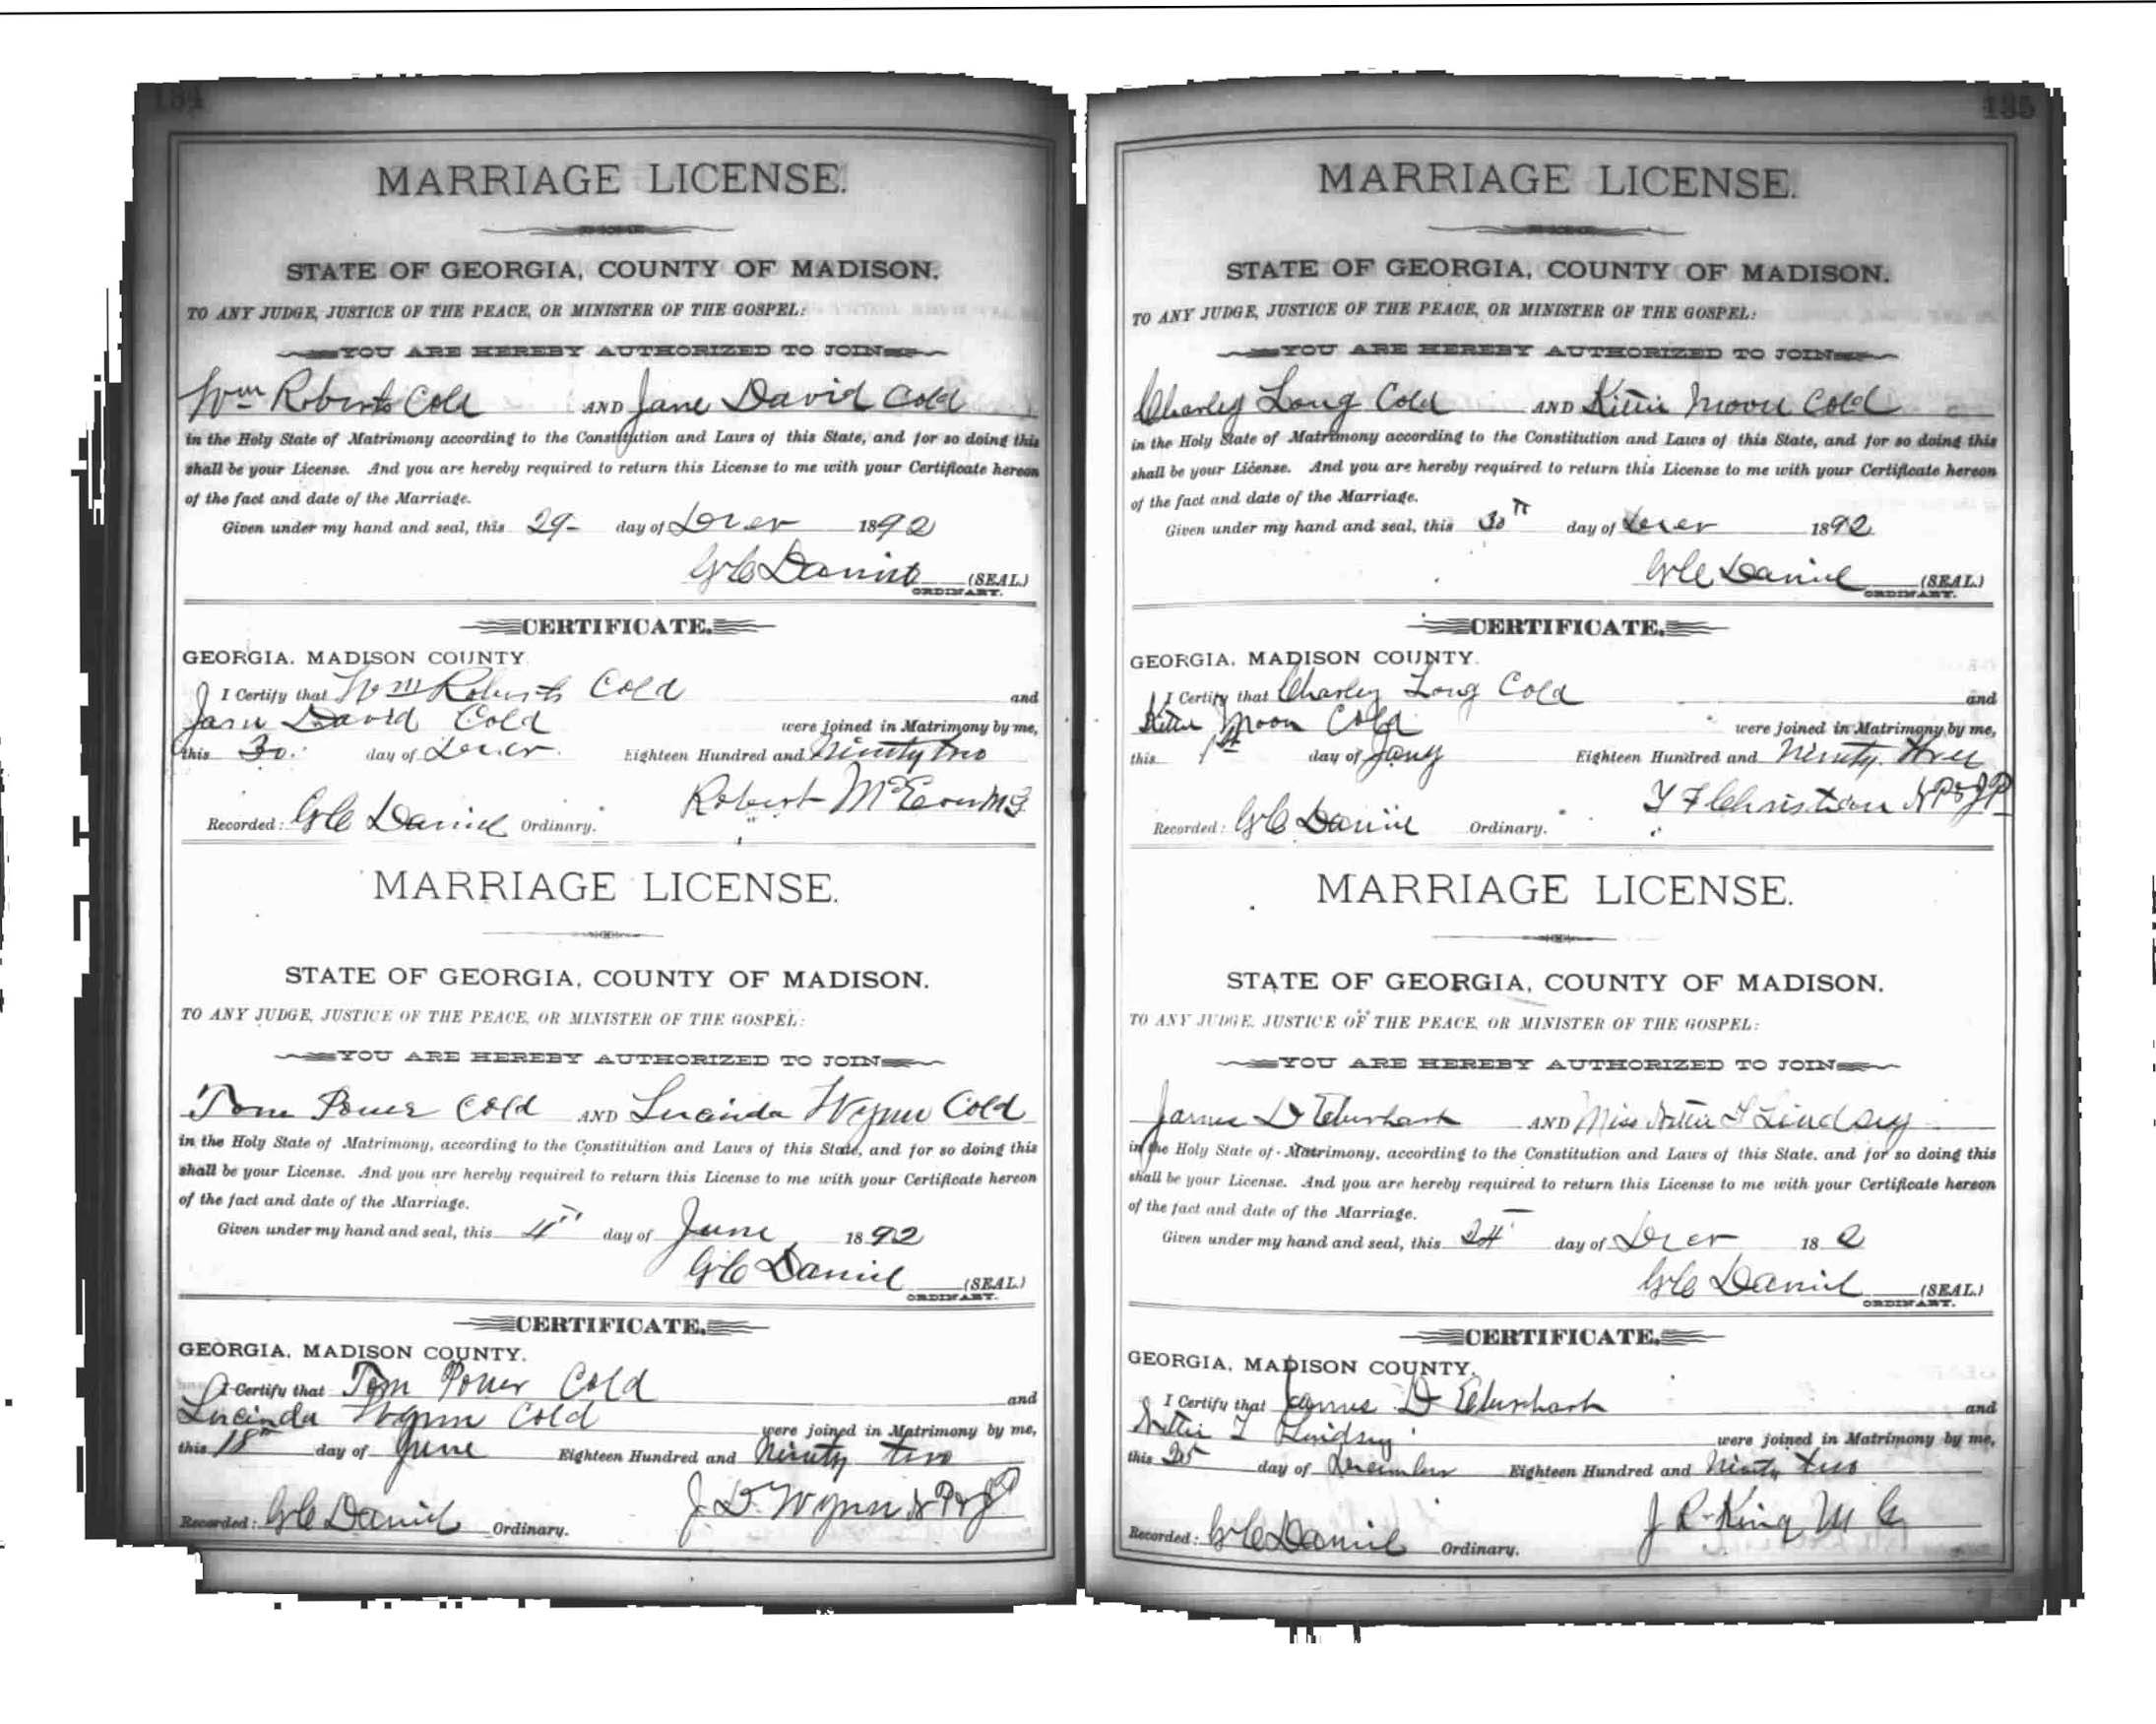 134
MARRIAGE LICENSE.
STATE OF GEORGIA, COUNTY OF MADISON.
TO ANY JUDGE, JUSTICE OF THE PEACE, OR MINISTER OF THE GOSPEL:
YOU ARE HEREBY AUTHORIZED TO JOIN
Wm Roberts Cold AND Jane David Cold
in the Holy State of Matrimony according to the Constitution and Laws of this State, and for so doing this
shall be your License. And you are hereby required to return this License to me with your Certificate hereon
of the fact and date of the Marriage.
Given under my hand and seal, this 29- day of Decr 1892
G C Daniel (SEAL.)
ORDINARY.
CERTIFICATE.
GEORGIA, MADISON COUNTY.
I Certify that Wm Roberts Cold and
Jane David Cold were joined in Matrimony by me,
this 30. day of Decr. Eighteen Hundred and Ninety two
Robert
Recorded: G C Daniel Ordinary.
MARRIAGE LICENSE.
STATE OF GEORGIA, COUNTY OF MADISON.
TO ANY JUDGE, JUSTICE OF THE PEACE, OR MINISTER OF THE GOSPEL:
YOU ARE HEREBY AUTHORIZED TO JOIN
Tom Power Cold AND Lucinda Wynn Cold
in the Holy State of Matrimony, according to the Constitution and Laws of this State, and for so doing this
shall be your License. And you are hereby required to return this License to me with your Certificate hereon
of the fact and date of the Marriage.
Given under my hand and seal, this 4th day of June 1892
G C Daniel (SEAL.)
ORDINARY.
CERTIFICATE.
GEORGIA, MADISON COUNTY.
I Certify that Tom Power Cold and
Lucinda Wynn Cold were joined in Matrimony by me,
this 18th day of June Eighteen Hundred and Ninety two
J. D. Wynn N P & J P
Recorded: G C Daniel Ordinary.
135
MARRIAGE LICENSE.
STATE OF GEORGIA, COUNTY OF MADISON.
TO ANY JUDGE, JUSTICE OF THE PEACE, OR MINISTER OF THE GOSPEL:
YOU ARE HEREBY AUTHORIZED TO JOIN
Charley Long Cold AND Kittie Moon Cold
in the Holy State of Matrimony according to the Constitution and Laws of this State, and for so doing this
shall be your License. And you are hereby required to return this License to me with your Certificate hereon
of the fact and date of the Marriage.
Given under my hand and seal, this 30th day of Decr 1892
G C Daniel (SEAL.)
ORDINARY.
CERTIFICATE.
GEORGIA, MADISON COUNTY.
I Certify that Charley Long Cold and
Kittie Moon Cold were joined in Matrimony by me,
this 1st day of Jany Eighteen Hundred and Ninety three
Y F Christian N P & J P
Recorded: G C Daniel Ordinary.
MARRIAGE LICENSE.
STATE OF GEORGIA, COUNTY OF MADISON.
TO ANY JUDGE, JUSTICE OF THE PEACE, OR MINISTER OF THE GOSPEL:
YOU ARE HEREBY AUTHORIZED TO JOIN
James D Eberhart AND Miss Lindsey
in the Holy State of Matrimony, according to the Constitution and Laws of this State, and for so doing this
shall be your License. And you are hereby required to return this License to me with your Certificate hereon
of the fact and date of the Marriage.
Given under my hand and seal, this 24 day of Decr 18 2
G C Daniel (SEAL.)
ORDINARY.
CERTIFICATE.
GEORGIA, MADISON COUNTY.
I Certify that James D Eberhart and
Lindsey were joined in Matrimony by me,
this 25 day of December Eighteen Hundred and Ninety two
J R King M G
Recorded: G C Daniel Ordinary.